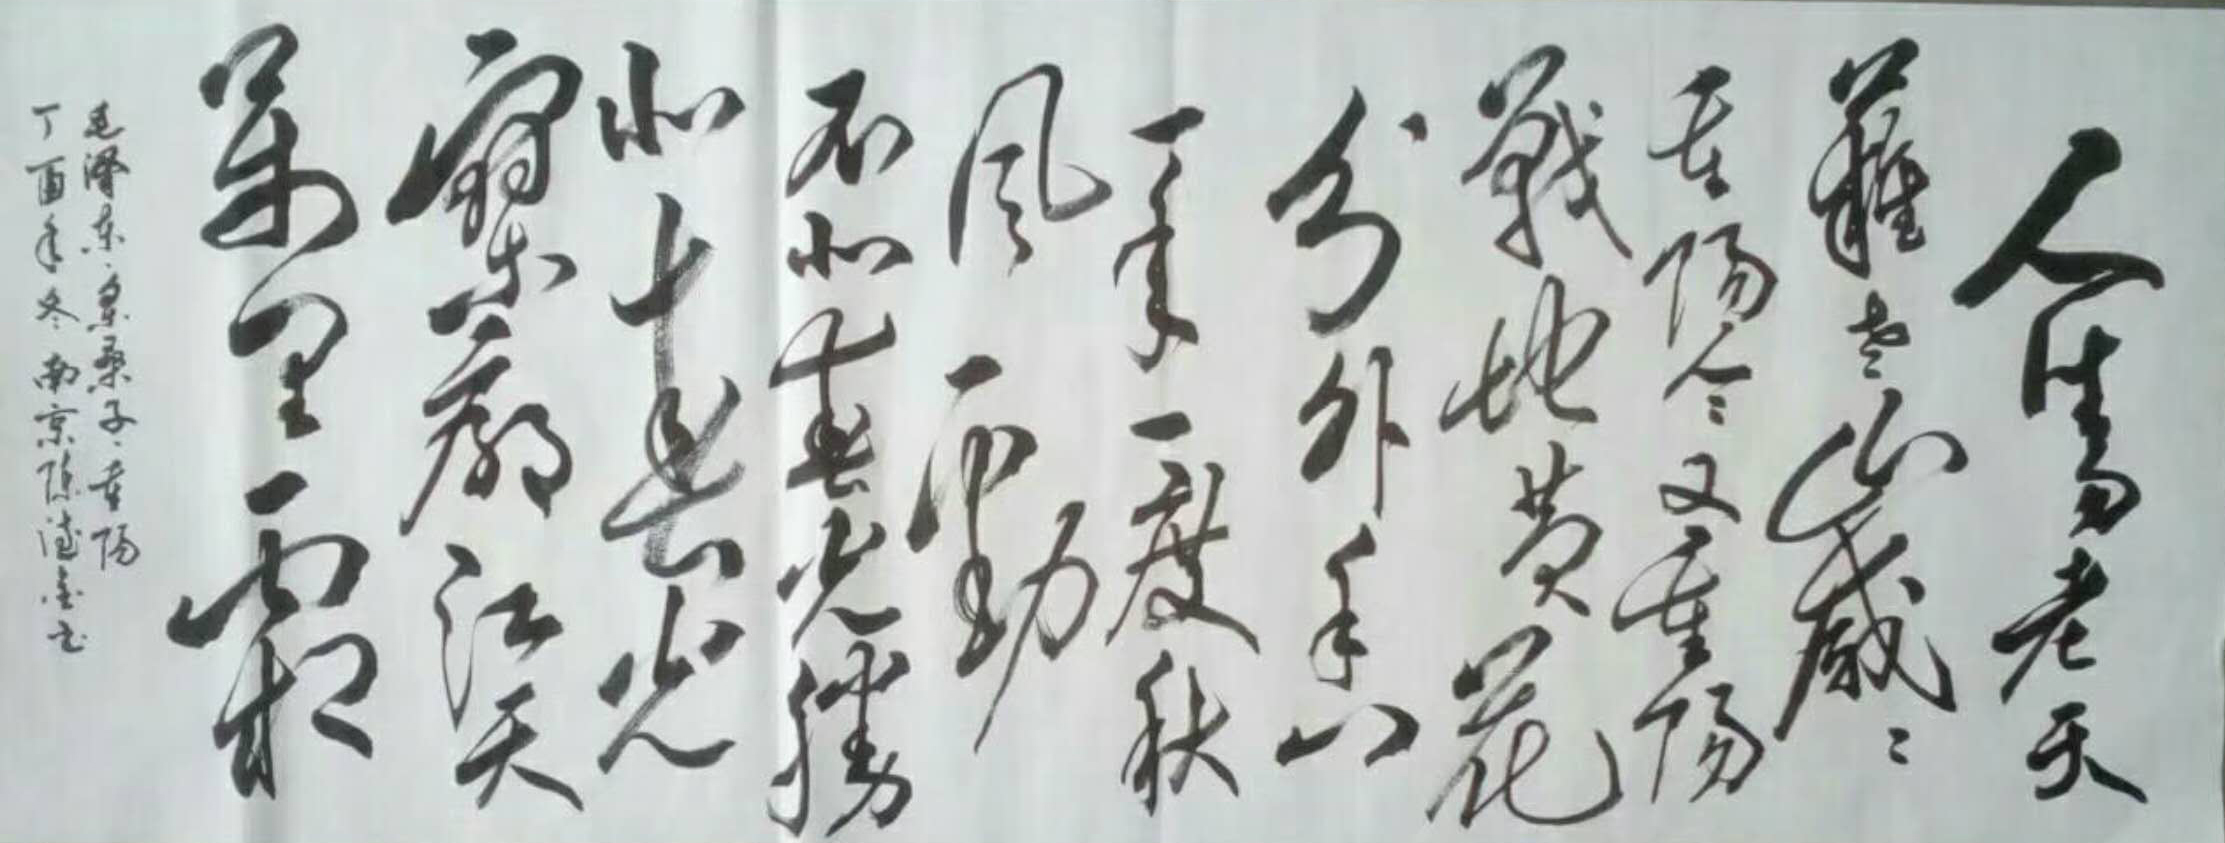 人生易老天
難老歲歲
重陽今又重陽
戰地黄花
分外香
一年一度秋
風勁
不似春光勝
似春光
寥廓江天
萬里霜
毛澤东采桑子重陽
丁酉年冬南京陈德金书